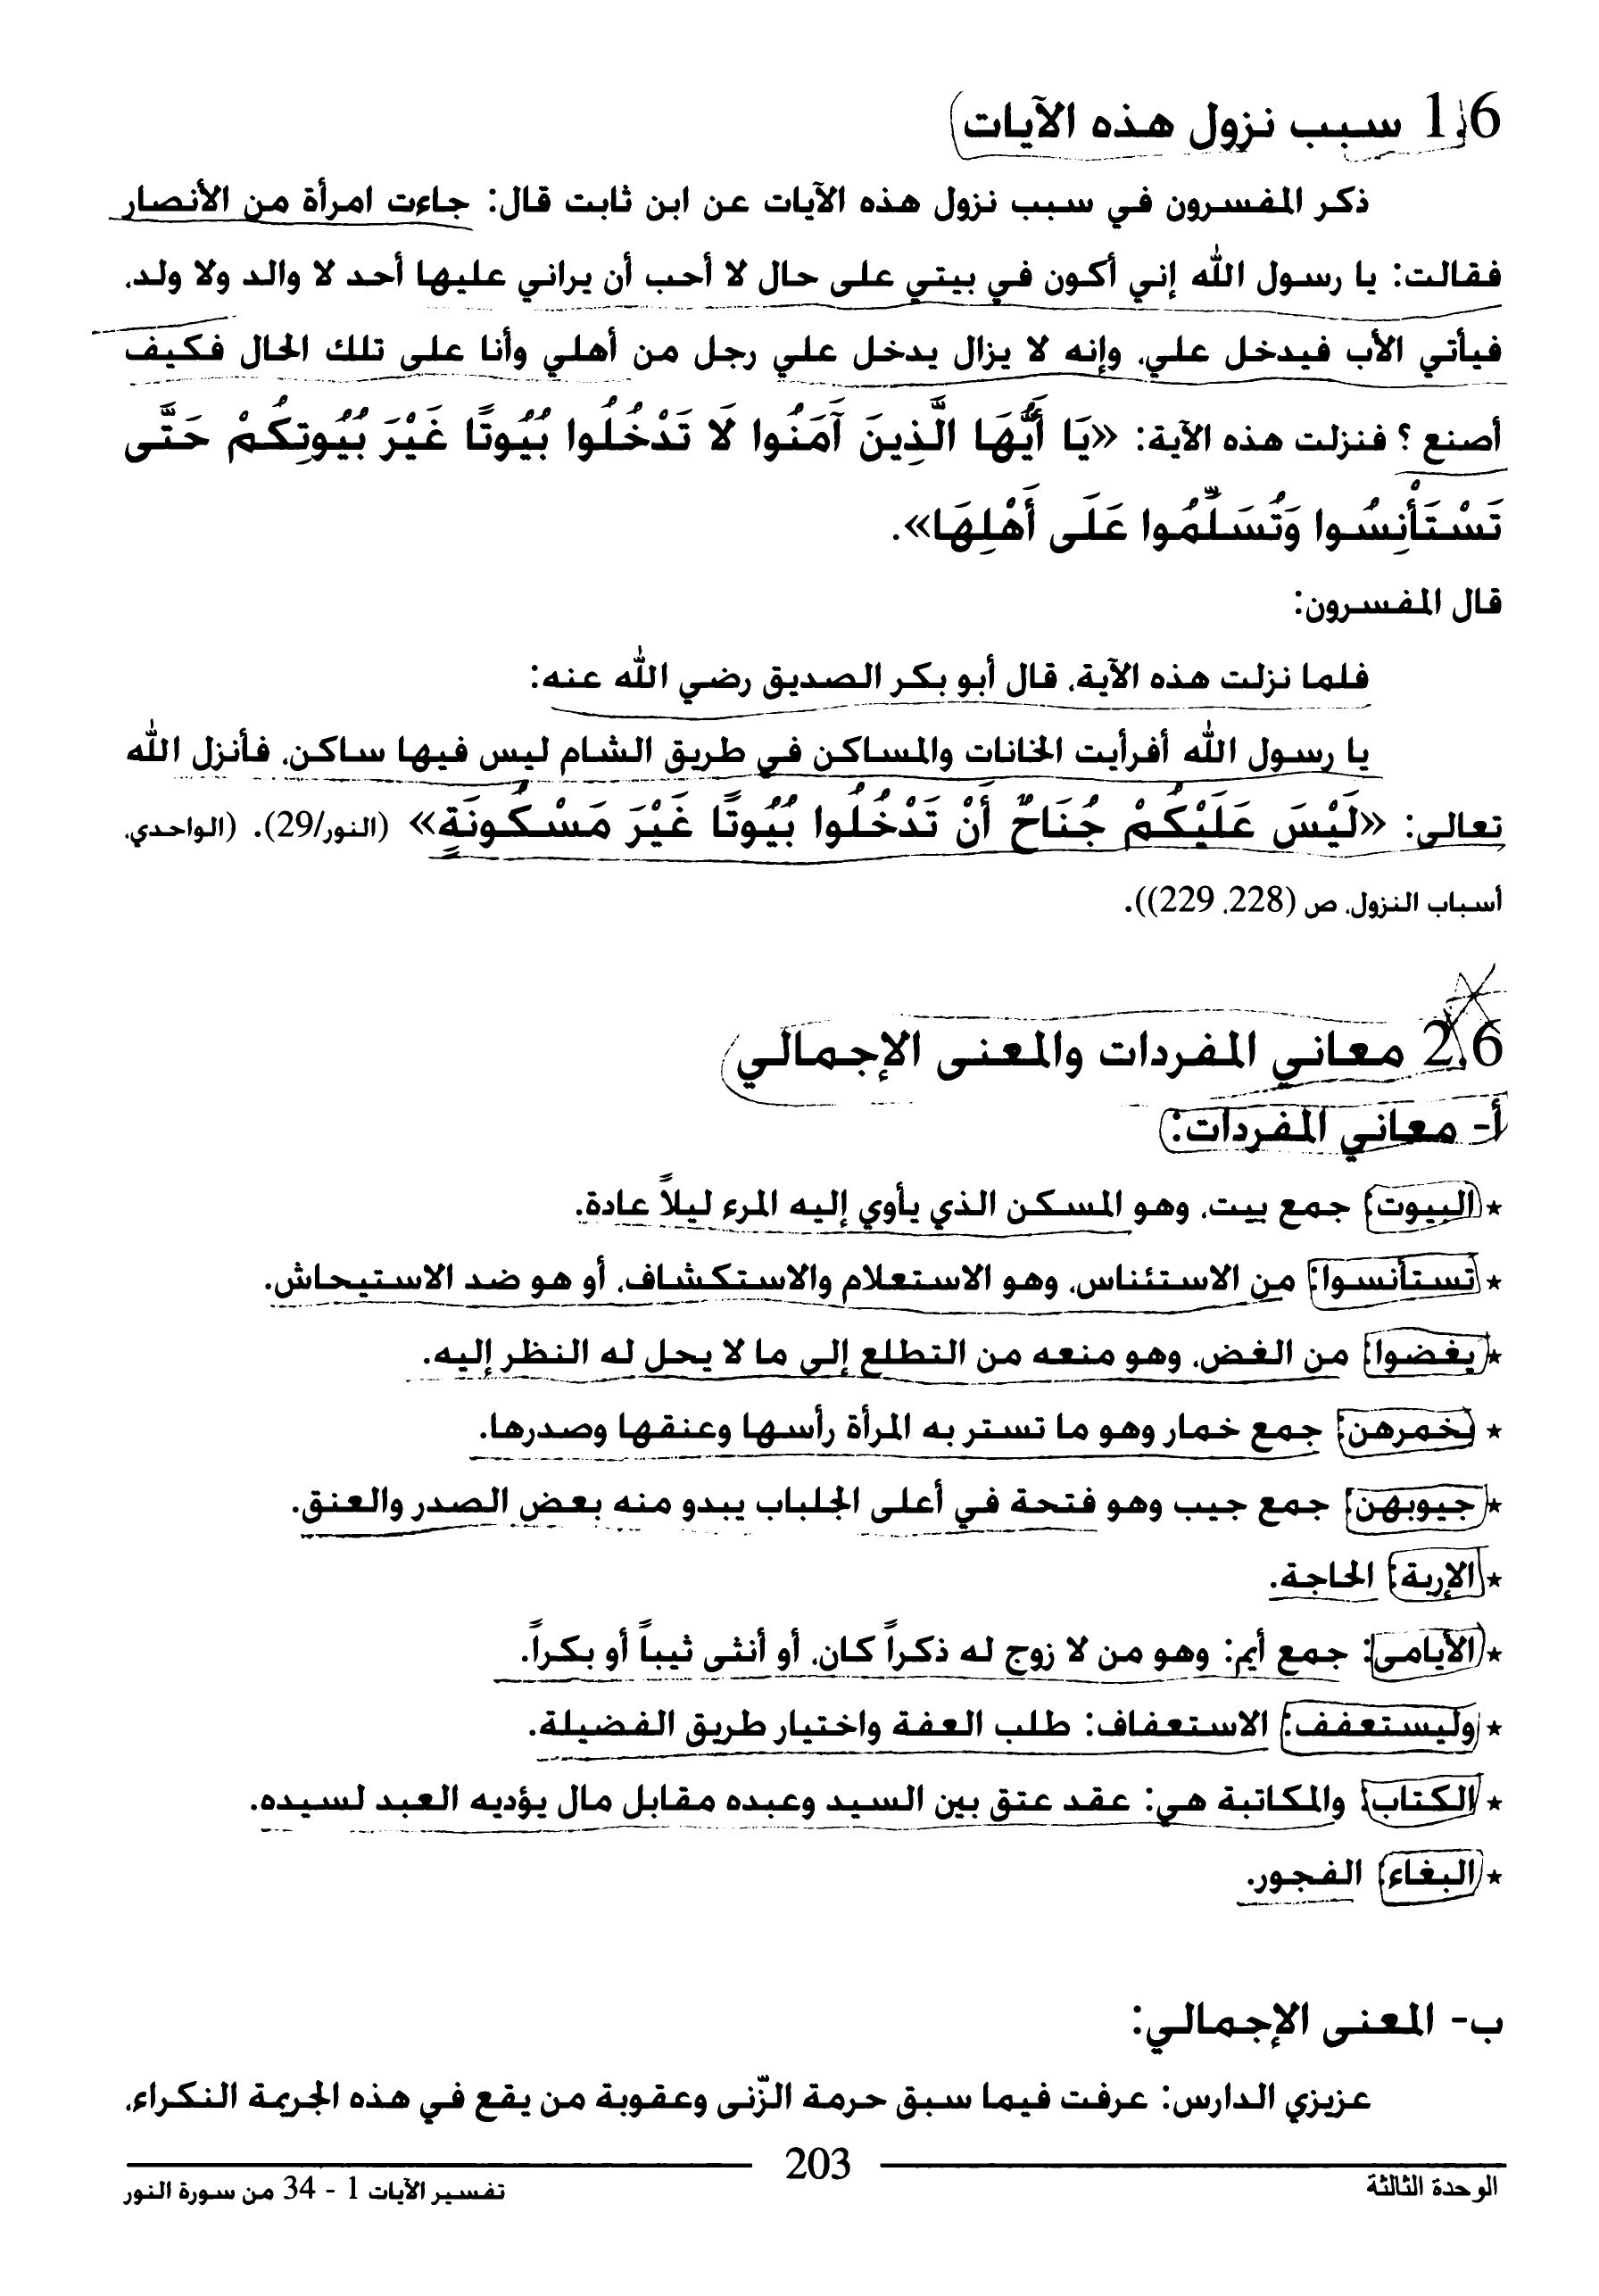 1.6 سبب نزول هذه الآيات
ذكر المفسرون في سبب نزول هذه الآيات عن ابن ثابت قال: جاءت امرأة من الأنصار
فقالت: يا رسول الله إني أكون في بيتي على حال لا أحب أن يراني عليها أحد لا والد ولا ولد،
فيأتي الأب فيدخل علي، وإنه لا يزال يدخل علي رجل من أهلي وأنا على تلك الحال فكيف
أصنع ؟ فنزلت هذه الآية: «يَا أَيُّهَا الَّذِينَ آمَنُوا لَا تَدْخُلُوا بُيُوتًا غَيْرَ بُيُوتِكُمْ حَتَّى
تَسْتَأْنِسُوا وَتُسَلِّمُوا عَلَى أَهْلِهَا».
قال المفسرون:
فلما نزلت هذه الآية، قال أبو بكر الصديق رضي الله عنه:
يا رسول الله أفرأيت الخانات والمساكن في طريق الشام ليس فيها ساكن، فأنزل الله
تعالى: «لَيْسَ عَلَيْكُمْ جُنَاحٌ أَنْ تَدْخُلُوا بُيُوتًا غَيْرَ مَسْكُونَةٍ» (النور/29). (الواحدي،
أسباب النزول، ص (228، 229)).
2.6 معاني المفردات والمعنى الإجمالي
أ- معاني المفردات:
* البيوت: جمع بيت، وهو المسكن الذي يأوي إليه المرء ليلاً عادة.
* تستأنسوا: من الاستئناس، وهو الاستعلام والاستكشاف، أو هو ضد الاستيحاش.
* يغضوا: من الغض، وهو منعه من التطلع إلى ما لا يحل له النظر إليه.
* بخمرهن: جمع خمار وهو ما تستر به المرأة رأسها وعنقها وصدرها.
* جيوبهن: جمع جيب وهو فتحة في أعلى الجلباب يبدو منه بعض الصدر والعنق.
* الإربة: الحاجة.
* الأيامى: جمع أيم: وهو من لا زوج له ذكراً كان، أو أنثى ثيباً أو بكراً.
* وليستعفف: الاستعفاف: طلب العفة واختيار طريق الفضيلة.
* الكتاب: والمكاتبة هي: عقد عتق بين السيد وعبده مقابل مال يؤديه العبد لسيده.
* البغاء: الفجور.
ب- المعنى الإجمالي:
عزيزي الدارس: عرفت فيما سبق حرمة الزّنى وعقوبة من يقع في هذه الجريمة النكراء،
203
الوحدة الثالثة
تفسير الآيات 1 - 34 من سورة النور